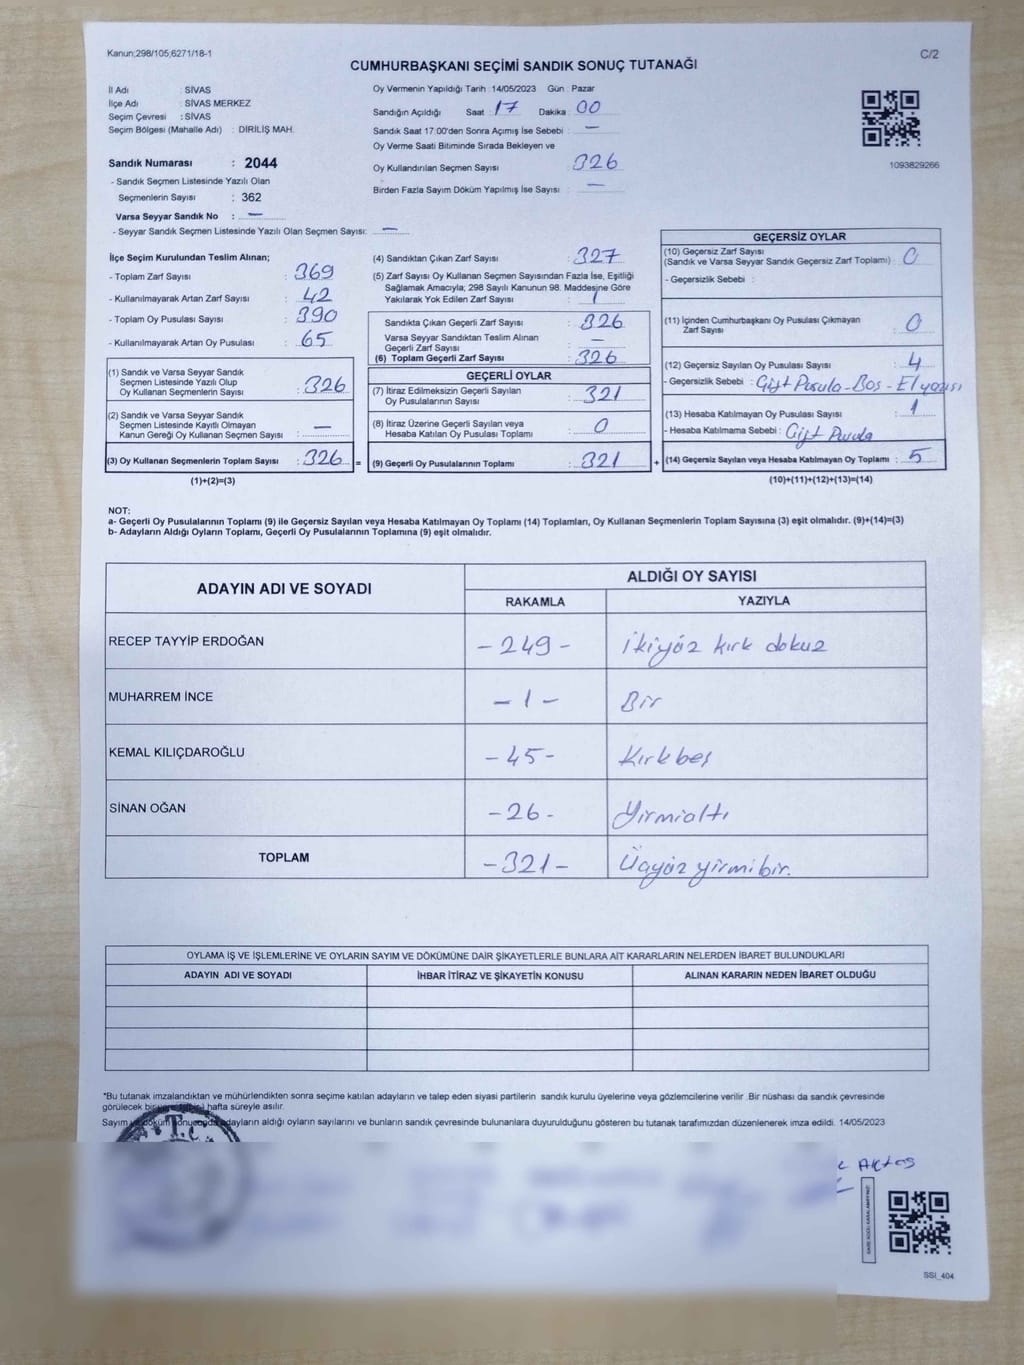 Kanun;298/105;6271/18-1
C/2
CUMHURBAŞKANI SEÇİMİ SANDIK SONUÇ TUTANAĞI
İl Adı : SİVAS
İlçe Adı : SİVAS MERKEZ
Seçim Çevresi : SİVAS
Seçim Bölgesi (Mahalle Adı) : DİRİLİŞ MAH.
Sandık Numarası : 2044
- Sandık Seçmen Listesinde Yazılı Olan
Seçmenlerin Sayısı : 362
Varsa Seyyar Sandık No : —
- Seyyar Sandık Seçmen Listesinde Yazılı Olan Seçmen Sayısı: —
Oy Vermenin Yapıldığı Tarih : 14/05/2023 Gün : Pazar
Sandığın Açıldığı Saat : 17 Dakika : 00
Sandık Saat 17:00'den Sonra Açımış İse Sebebi : —
Oy Verme Saati Bitiminde Sırada Bekleyen ve
Oy Kullandırılan Seçmen Sayısı : 326
Birden Fazla Sayım Döküm Yapılmış İse Sayısı : —
1093829266
İlçe Seçim Kurulundan Teslim Alınan;
- Toplam Zarf Sayısı : 369
- Kullanılmayarak Artan Zarf Sayısı : 42
- Toplam Oy Pusulası Sayısı : 390
- Kullanılmayarak Artan Oy Pusulası : 65
(1) Sandık ve Varsa Seyyar Sandık
Seçmen Listesinde Yazılı Olup
Oy Kullanan Seçmenlerin Sayısı : 326
(2) Sandık ve Varsa Seyyar Sandık
Seçmen Listesinde Kayıtlı Olmayan
Kanun Gereği Oy Kullanan Seçmen Sayısı : —
(3) Oy Kullanan Seçmenlerin Toplam Sayısı : 326 =
(1)+(2)=(3)
(4) Sandıktan Çıkan Zarf Sayısı : 327
(5) Zarf Sayısı Oy Kullanan Seçmen Sayısından Fazla İse, Eşitliği
Sağlamak Amacıyla; 298 Sayılı Kanunun 98. Maddesine Göre
Yakılarak Yok Edilen Zarf Sayısı : 1
Sandıkta Çıkan Geçerli Zarf Sayısı : 326
Varsa Seyyar Sandıktan Teslim Alınan
Geçerli Zarf Sayısı : —
(6) Toplam Geçerli Zarf Sayısı : 326
GEÇERLİ OYLAR
(7) İtiraz Edilmeksizin Geçerli Sayılan
Oy Pusulalarının Sayısı : 321
(8) İtiraz Üzerine Geçerli Sayılan veya
Hesaba Katılan Oy Pusulası Toplamı : 0
(9) Geçerli Oy Pusulalarının Toplamı : 321 +
GEÇERSİZ OYLAR
(10) Geçersiz Zarf Sayısı
(Sandık ve Varsa Seyyar Sandık Geçersiz Zarf Toplamı) : 0
- Geçersizlik Sebebi :
(11) İçinden Cumhurbaşkanı Oy Pusulası Çıkmayan
Zarf Sayısı : 0
(12) Geçersiz Sayılan Oy Pusulası Sayısı : 4
- Geçersizlik Sebebi : Çift Pusula - Boş - El yazısı
(13) Hesaba Katılmayan Oy Pusulası Sayısı : 1
- Hesaba Katılmama Sebebi : Çift Pusula
(14) Geçersiz Sayılan veya Hesaba Katılmayan Oy Toplamı : 5
(10)+(11)+(12)+(13)=(14)
NOT:
a- Geçerli Oy Pusulalarının Toplamı (9) ile Geçersiz Sayılan veya Hesaba Katılmayan Oy Toplamı (14) Toplamları, Oy Kullanan Seçmenlerin Toplam Sayısına (3) eşit olmalıdır. (9)+(14)=(3)
b- Adayların Aldığı Oyların Toplamı, Geçerli Oy Pusulalarının Toplamına (9) eşit olmalıdır.
ADAYIN ADI VE SOYADI
ALDIĞI OY SAYISI
RAKAMLA YAZIYLA
RECEP TAYYİP ERDOĞAN -249- ikiyüz kırk dokuz
MUHARREM İNCE -1- Bir
KEMAL KILIÇDAROĞLU -45- Kırkbeş
SİNAN OĞAN -26- Yirmialtı
TOPLAM -321- Üçyüz yirmibir.
OYLAMA İŞ VE İŞLEMLERİNE VE OYLARIN SAYIM VE DÖKÜMÜNE DAİR ŞİKAYETLERLE BUNLARA AİT KARARLARIN NELERDEN İBARET BULUNDUKLARI
ADAYIN ADI VE SOYADI İHBAR İTİRAZ VE ŞİKAYETİN KONUSU ALINAN KARARIN NEDEN İBARET OLDUĞU
*Bu tutanak imzalandıktan ve mühürlendikten sonra seçime katılan adayların ve talep eden siyasi partilerin sandık kurulu üyelerine veya gözlemcilerine verilir .Bir nüshası da sandık çevresinde
görülecek bir hafta süreyle asılır.
Sayım döküm adayların aldığı oyların sayılarını ve bunların sandık çevresinde bulunanlara duyurulduğunu gösteren bu tutanak tarafımızdan düzenlenerek imza edildi. 14/05/2023
T.C
Aktaş
SSI_404